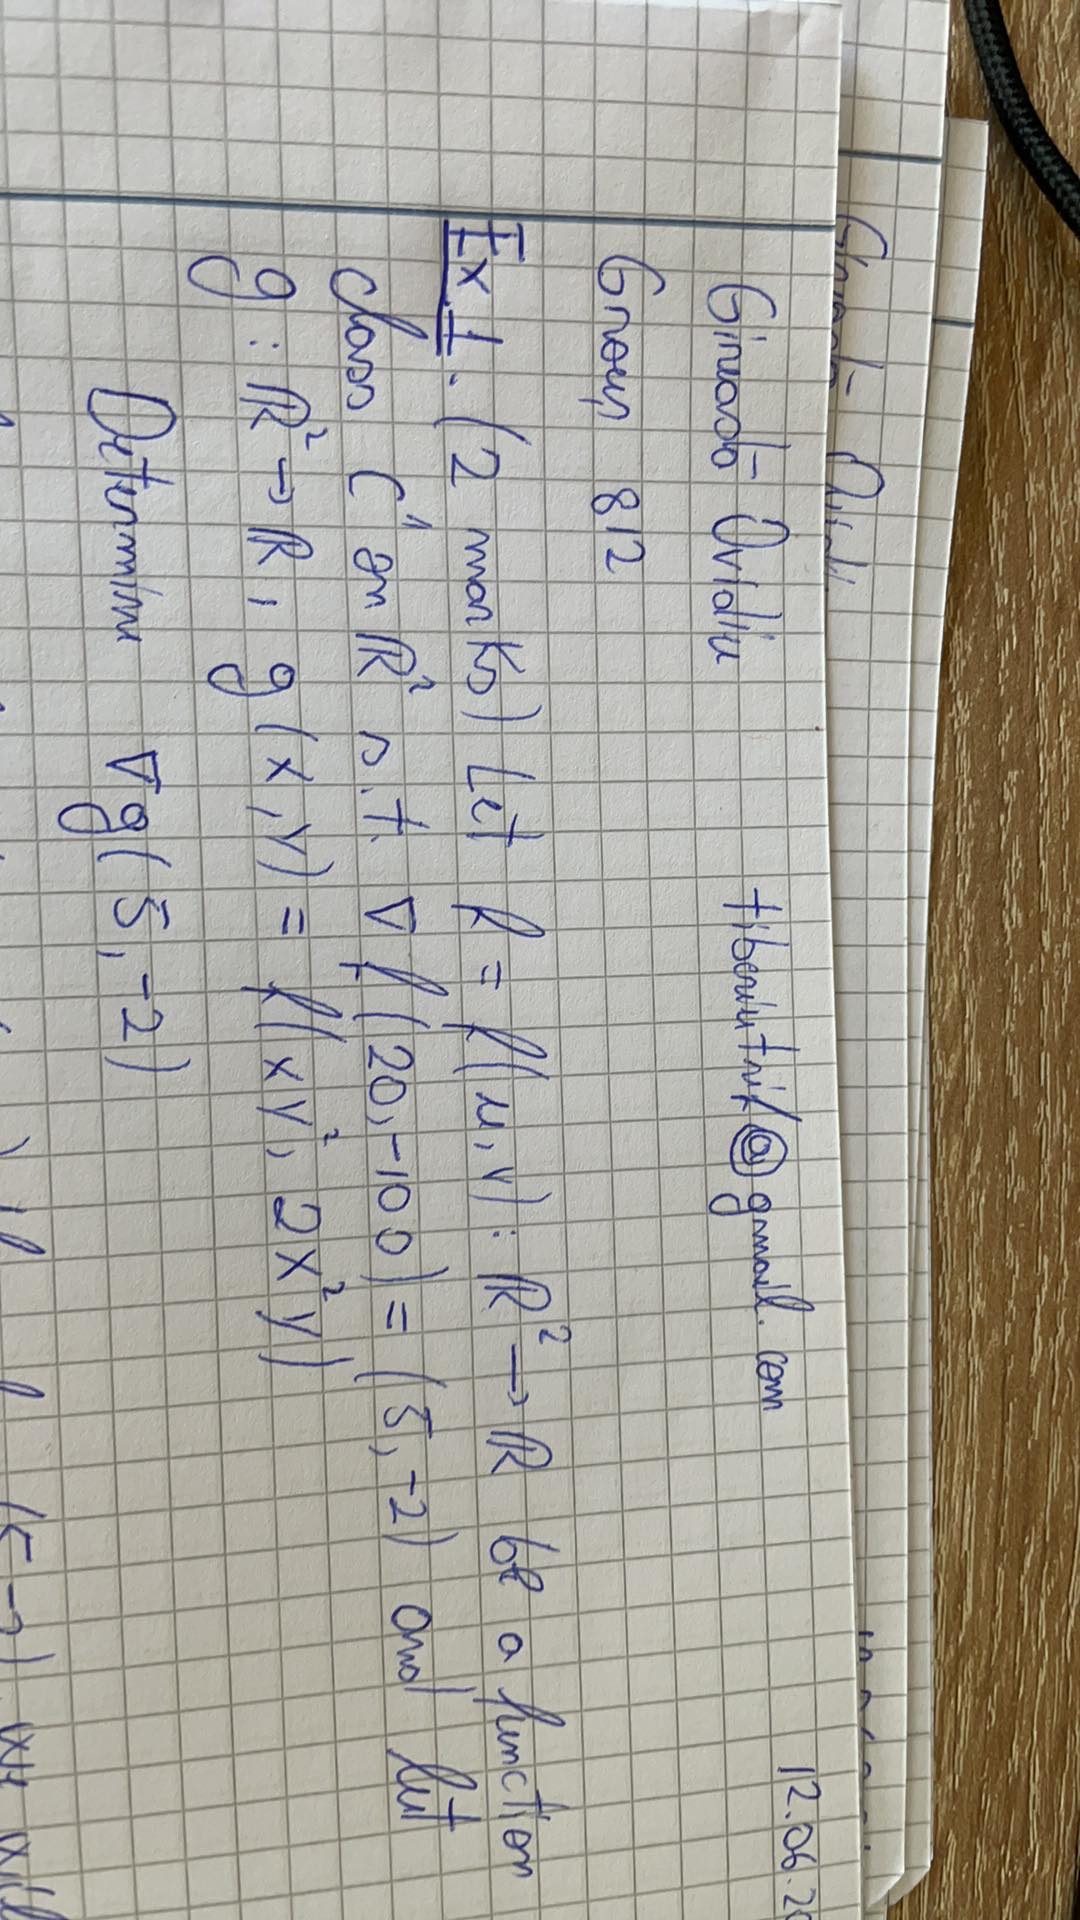 Ovidiu
tiberiutrif@gmail.com
12.06.20
Group 812
Ex 1. (2 marks) Let f = f(u,v): ℝ² → ℝ be a function
class C¹ on ℝ² s.t. ∇f(20,-100) = (5,-2) and let
g: ℝ² → ℝ, g(x,y) = f(xy², 2x²y)
Determine ∇g(5,-2)
(5,-2) we will